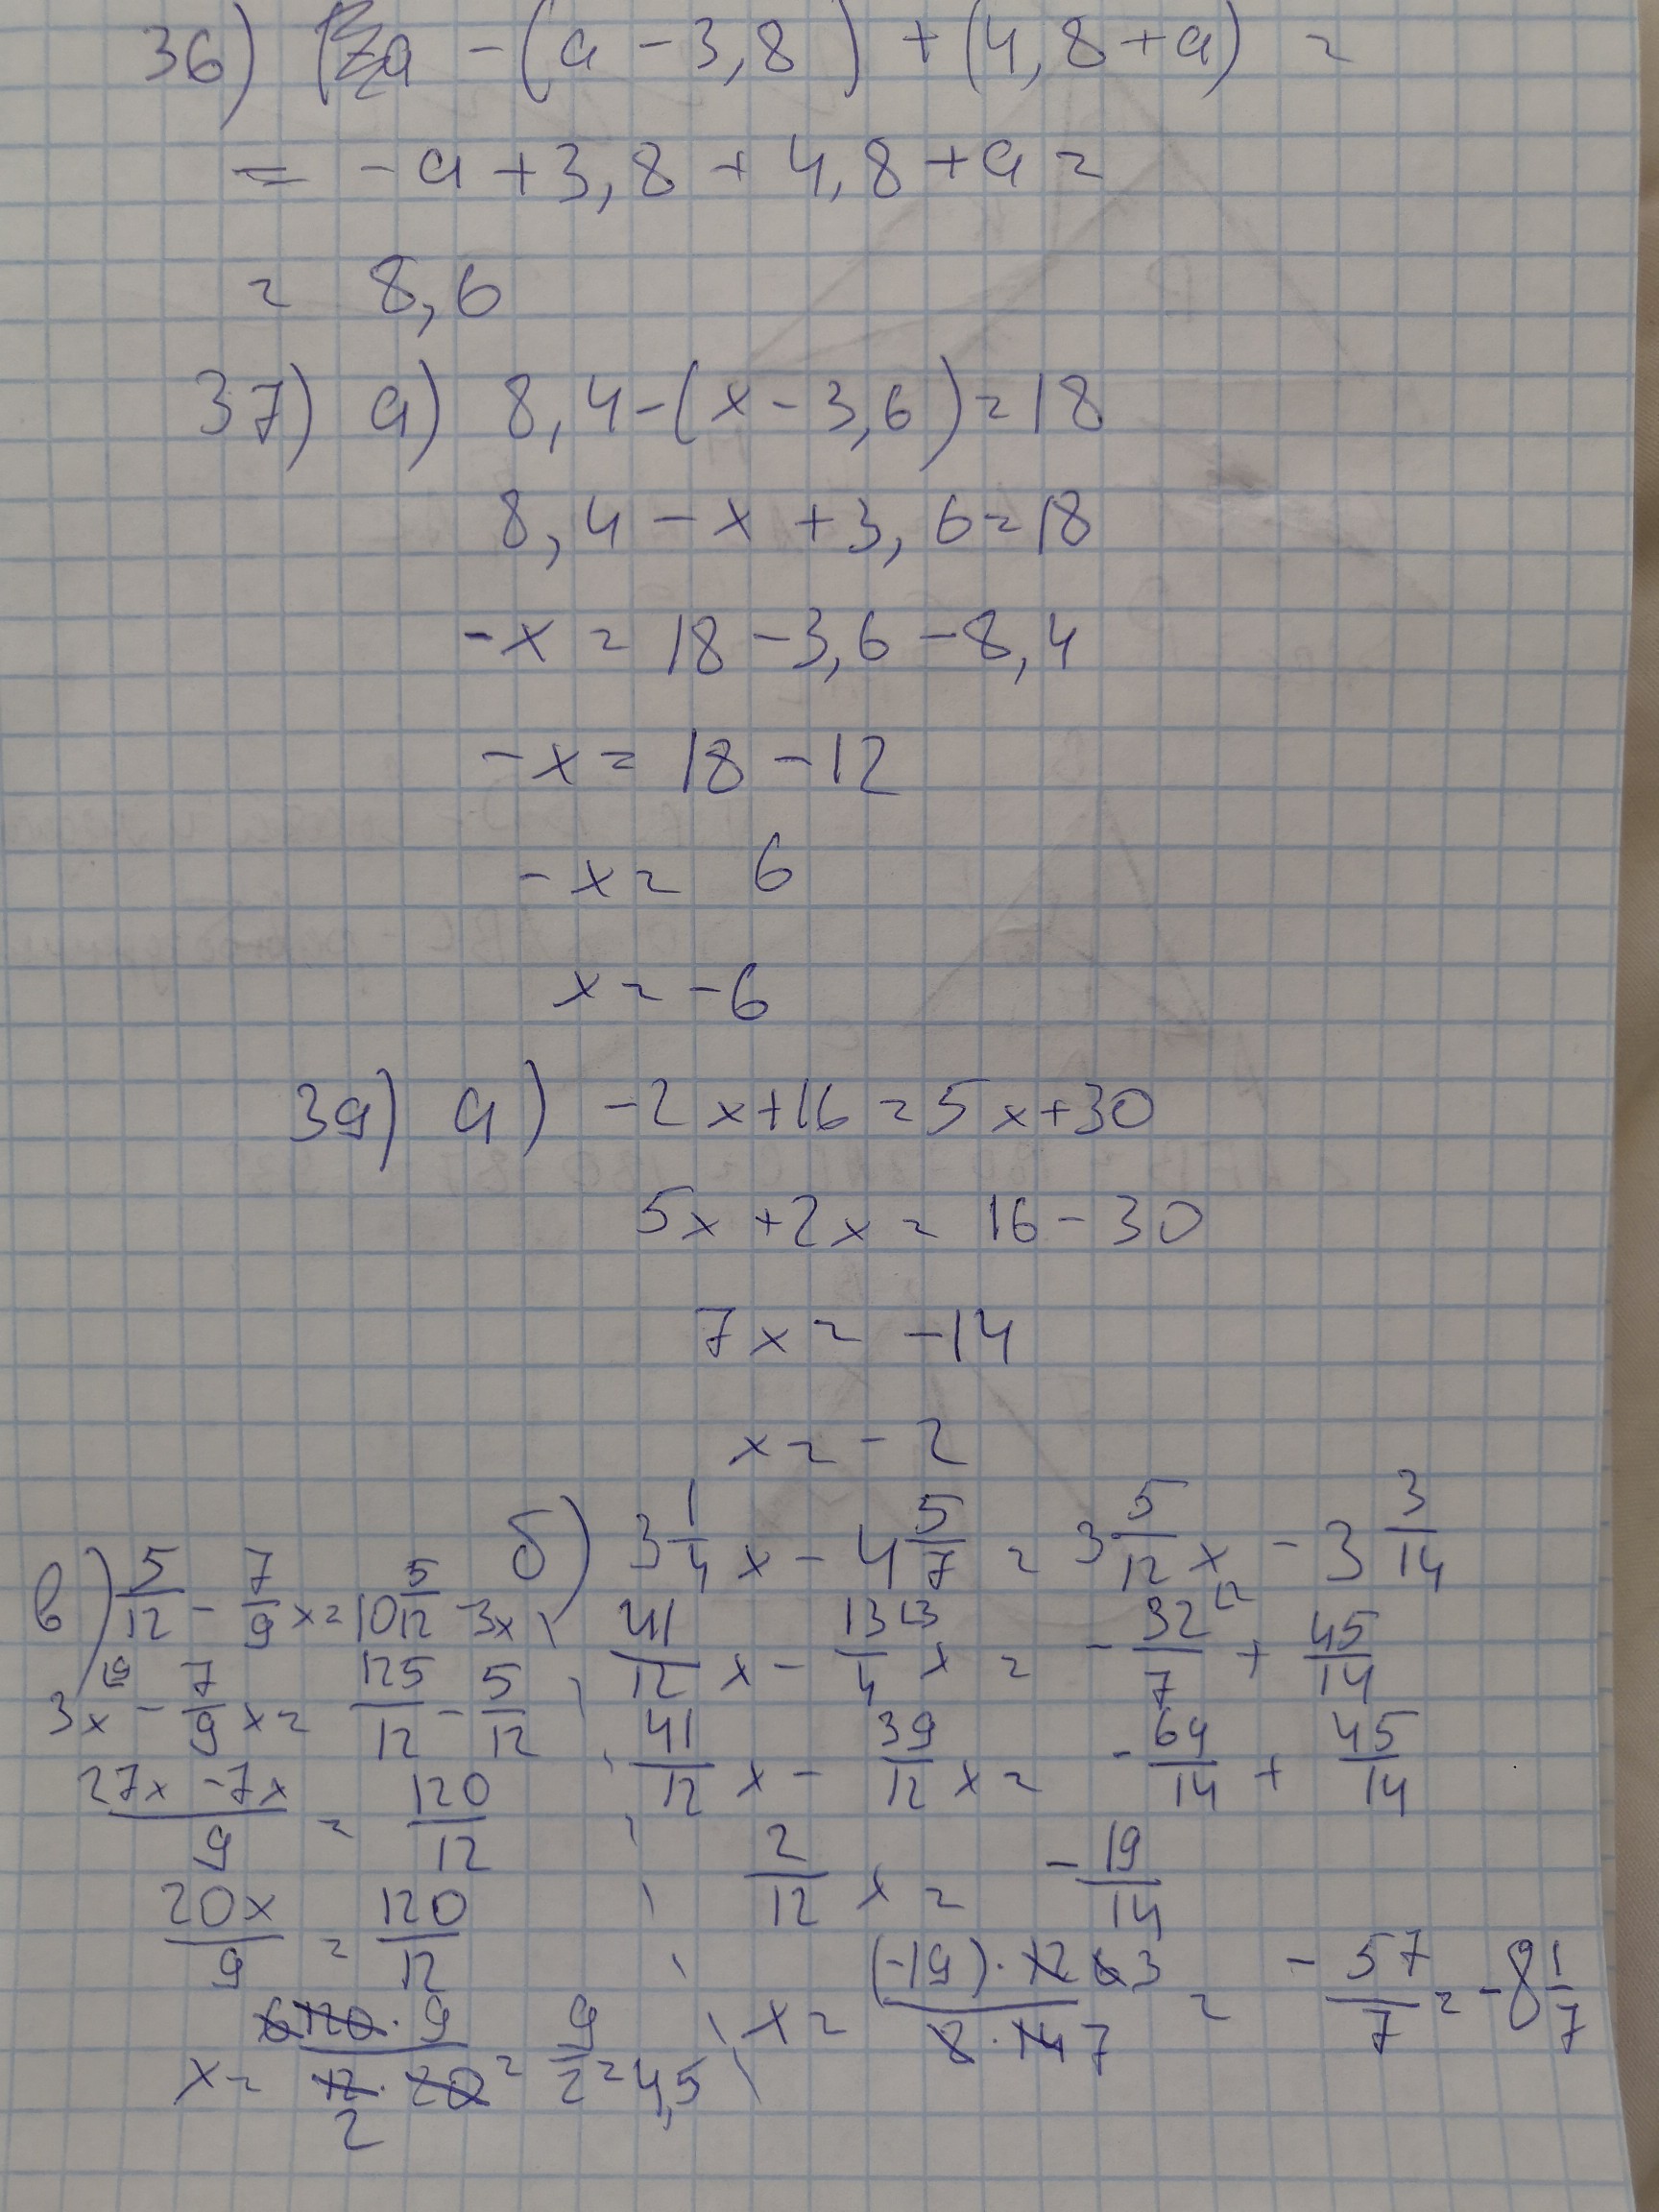 36) -(a-3,8)+(4,8+a)=
= -a+3,8+4,8+a=
= 8,6
37) a) 8,4-(x-3,6)=18
8,4-x+3,6=18
-x=18-3,6-8,4
-x=18-12
-x=6
x=-6
39) a) -2x+16=5x+30
5x+2x=16-30
7x=-14
x=-2
б) 3 1/4 x - 4 5/7 = 3 5/12 x - 3 3/14
41/12 x - 13/4 x = - 32/7 + 45/14
41/12 x - 39/12 x = - 64/14 + 45/14
2/12 x = - 19/14
x = (-19)·12 6 3 / 2·14 7 = - 57/7 = -8 1/7
в) 5/12 - 7/9 x = 10 5/12 - 3x
3x - 7/9 x = 125/12 - 5/12
27x-7x / 9 = 120/12
20x/9 = 120/12
x = 6 120·9 / 12·20 2 = 9/2 = 4,5